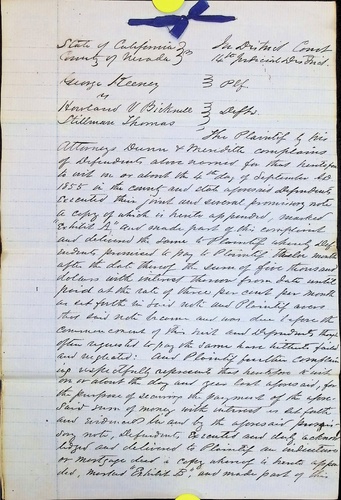 State of California } In District Court
County of Nevada } 14th Judicial District
George Keeney } Plf.
vs
Howland & Bicknell } Defts.
Stillman Thomas
The Plaintiff by his
Attorneys Dunn & Meredith complains
of Defendants above named for that heretofore
to wit on or about the 4th day of September A.D.
1855 in the county and state aforesaid defendants
executed their joint and several promissory note
a copy of which is hereto appended, marked
"Exhibit A," and made part of this complaint
and delivered the same to Plaintiff whereby Def
endants promised to pay to Plaintiff twelve months
after the date thereof the sum of five thousand
dollars with interest thereon from date until
paid at the rate of three per cent per month
as set forth in said note and Plaintiff avers
that said note became and was due before the
commencement of this suit and Defendants though
often requested to pay the same have hitherto failed
and neglected: And Plaintiff further complain
ing respectfully represents that heretofore to wit
on or about the day and year last aforesaid, for
the purpose of securing the payment of the afore
said sum of money with interest as set forth
and evidenced in and by the aforesaid promis
sory note, Defendants executed and duly acknow
ledged and delivered to Plaintiff an indenture
or mortgage deed a copy whereof is hereto appen
ded, marked "Exhibit B," and made part of this